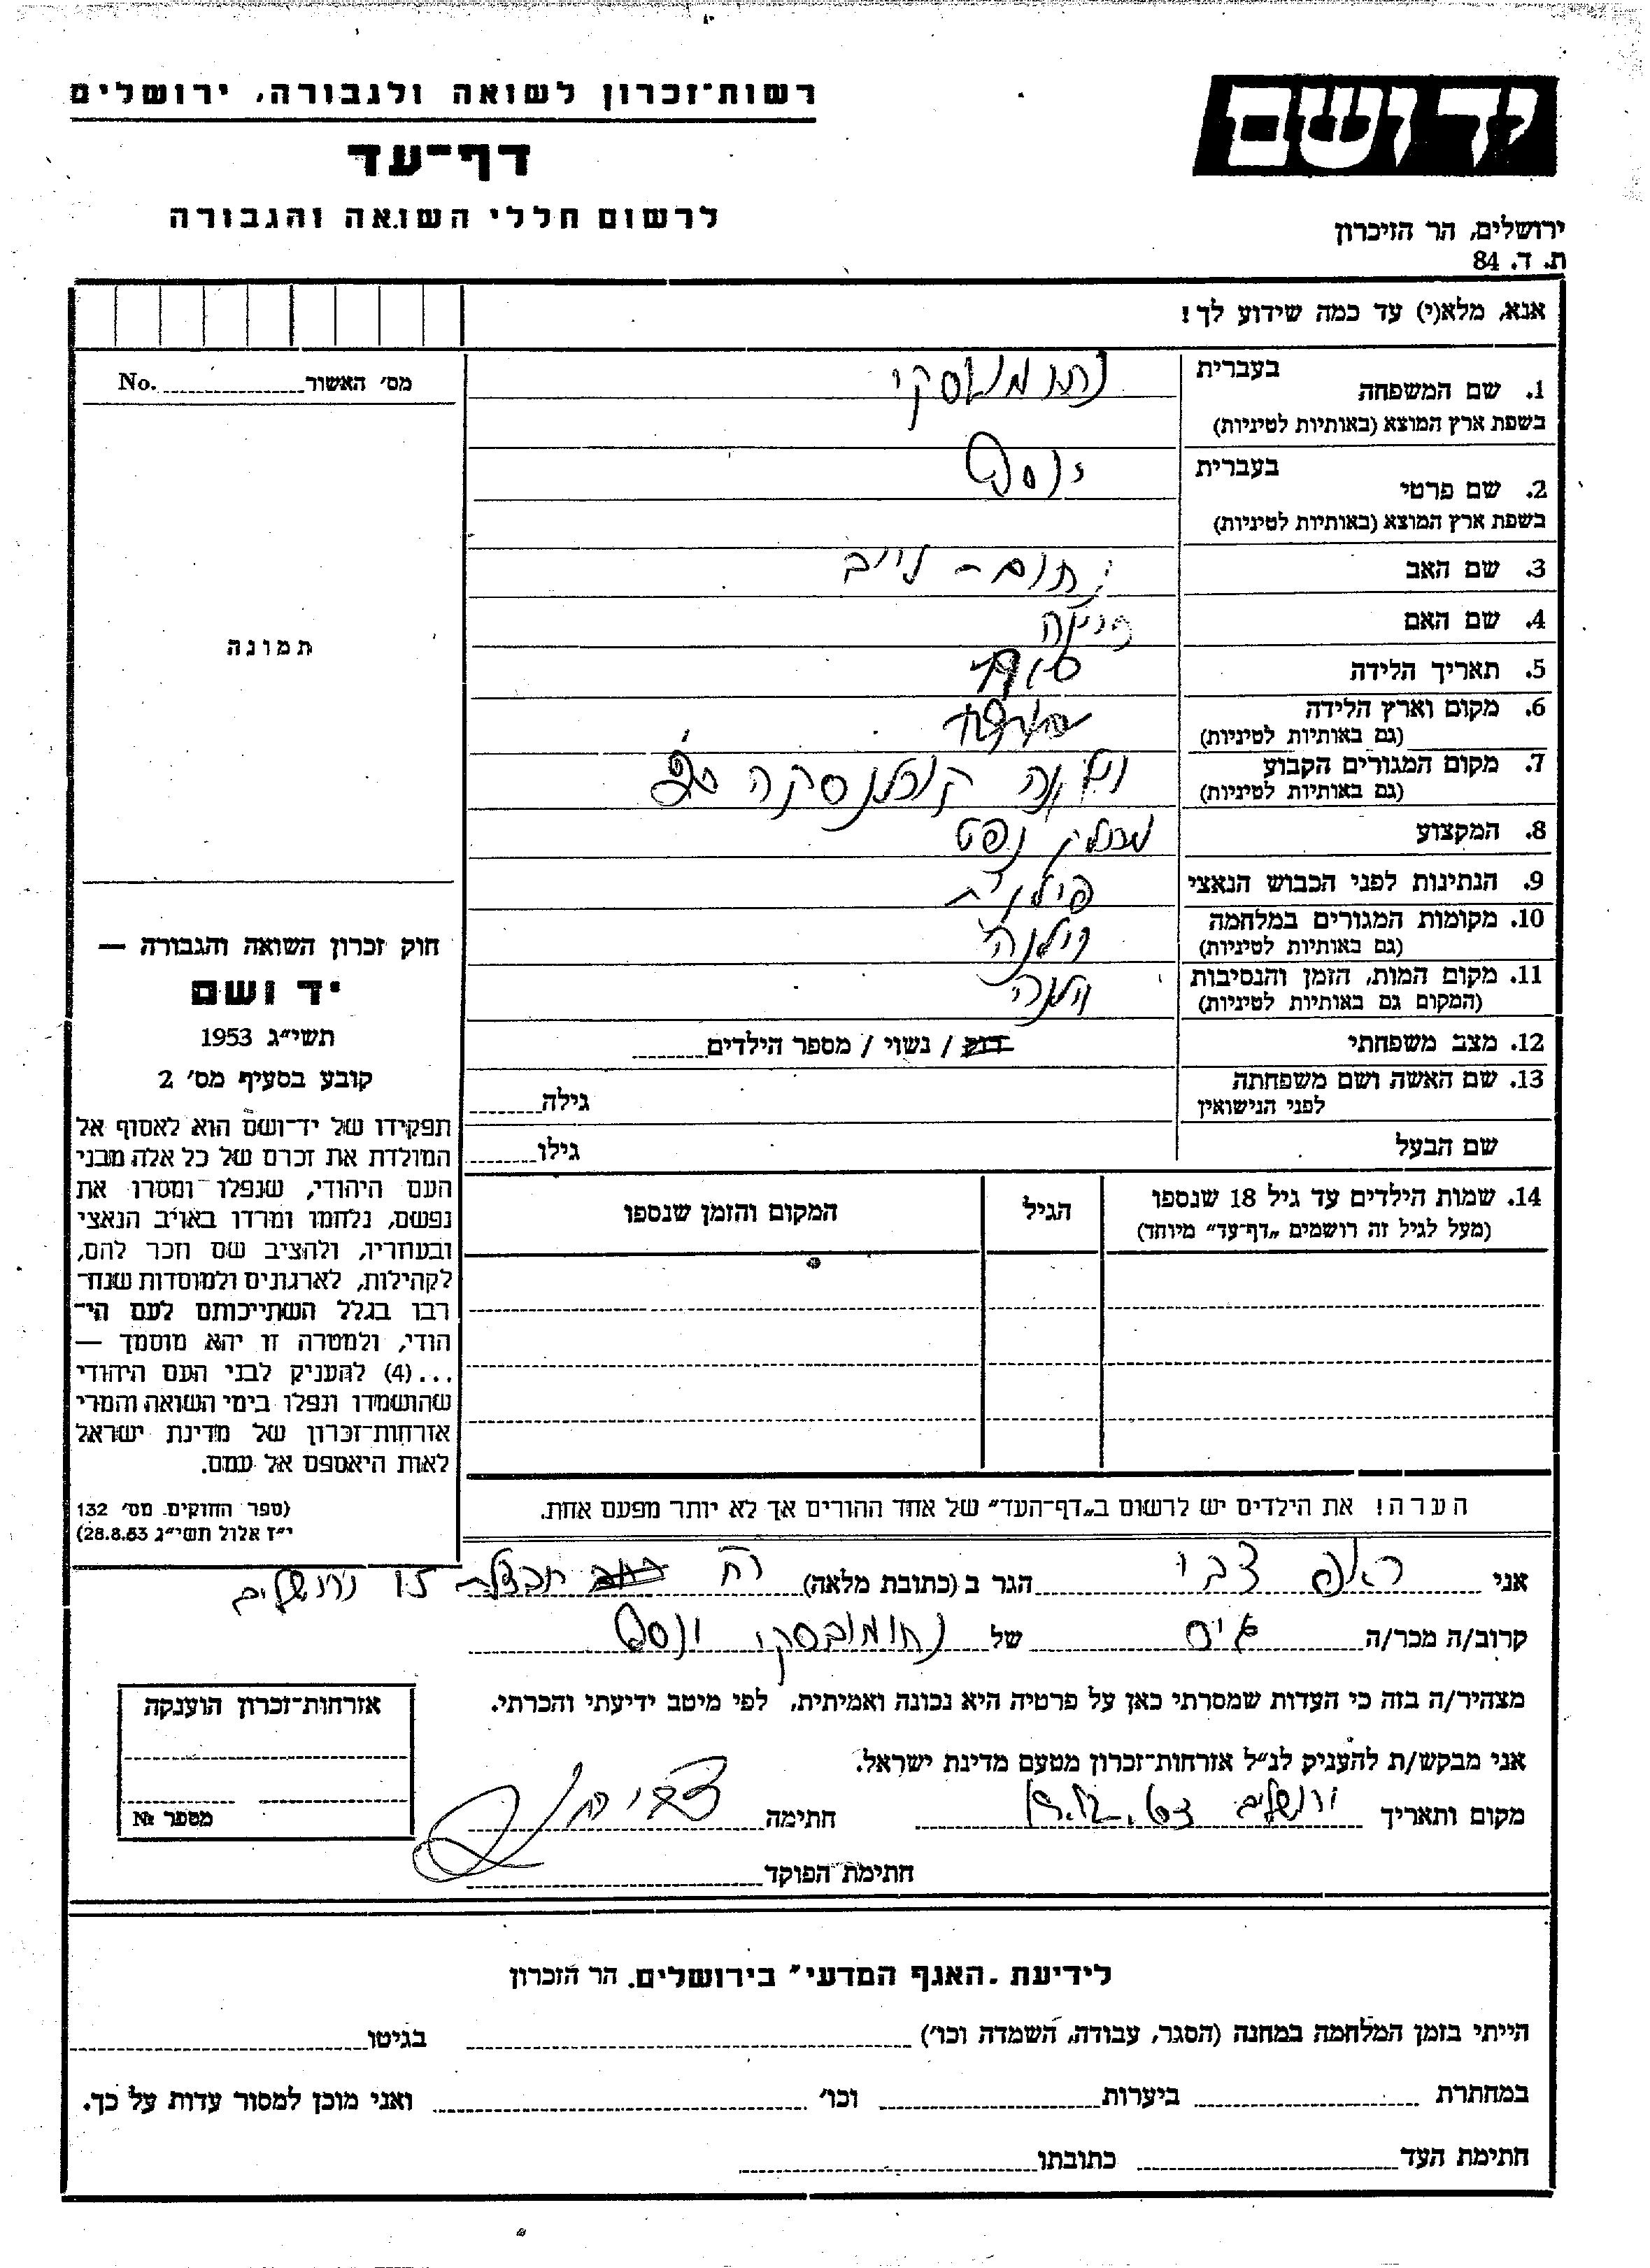 רשות־זכרון לשואה ולגבורה, ירושלים
דף־עד
לרשום חללי השואה והגבורה
יד ושם
ירושלים, הר הזיכרון
ת. ד. 84
אנא, מלא(י) עד כמה שידוע לך!
מס' האשור No.
תמונה
1. שם המשפחה בעברית
בשפת ארץ המוצא (באותיות לטיניות)
2. שם פרטי בעברית יוסף
בשפת ארץ המוצא (באותיות לטיניות)
3. שם האב
4. שם האם
5. תאריך הלידה
6. מקום וארץ הלידה
(גם באותיות לטיניות)
7. מקום המגורים הקבוע וילנה
(גם באותיות לטיניות)
8. המקצוע נפט
9. הנתינות לפני הכבוש הנאצי פולנית
10. מקומות המגורים במלחמה וילנה
(גם באותיות לטיניות)
11. מקום המות, הזמן והנסיבות וילנה
(המקום גם באותיות לטיניות)
12. מצב משפחתי רוק / נשוי / מספר הילדים
13. שם האשה ושם משפחתה
לפני הנישואין גילה
שם הבעל גילו
14. שמות הילדים עד גיל 18 שנספו
(מעל לגיל זה רושמים „דף־עד" מיוחד)
הגיל
המקום והזמן שנספו
חוק זכרון השואה והגבורה —
יד ושם
תשי"ג 1953
קובע בסעיף מס' 2
תפקידו של יד־ושם הוא לאסוף אל
המולדת את זכרם של כל אלה מבני
העם היהודי, שנפלו ומסרו את
נפשם, נלחמו ומרדו באויב הנאצי
ובעוזריו, ולהציב שם וזכר להם,
לקהילות, לארגונים ולמוסדות שנח־
רבו בגלל השתייכותם לעם הי־
הודי, ולמטרה זו יהא מוסמך —
...(4) להעניק לבני העם היהודי
שהושמדו ונפלו בימי השואה והמרי
אזרחות־זכרון של מדינת ישראל
לאות היאספם אל עמם.
(ספר החוקים מס' 132
י"ז אלול תשי"ג 28.8.53)
הערה! את הילדים יש לרשום ב„דף־העד" של אחד ההורים אך לא יותר מפעם אחת.
אני צבי הגר ב (כתובת מלאה) רח חבצלת 15 ירושלים
קרוב/ה מכר/ה גיס של נחומובסקי יוסף
מצהיר/ה בזה כי העדות שמסרתי כאן על פרטיה היא נכונה ואמיתית, לפי מיטב ידיעתי והכרתי.
אני מבקש/ת להעניק לנ"ל אזרחות־זכרון מטעם מדינת ישראל.
מקום ותאריך ירושלים חתימה
חתימת הפוקד
אזרחות־זכרון הוענקה
מספר №
לידיעת „האגף המדעי" בירושלים, הר הזכרון
הייתי בזמן המלחמה במחנה (הסגר, עבודה, השמדה וכו') בגיטו
במחתרת ביערות וכו' ואני מוכן למסור עדות על כך.
חתימת העד כתובתו